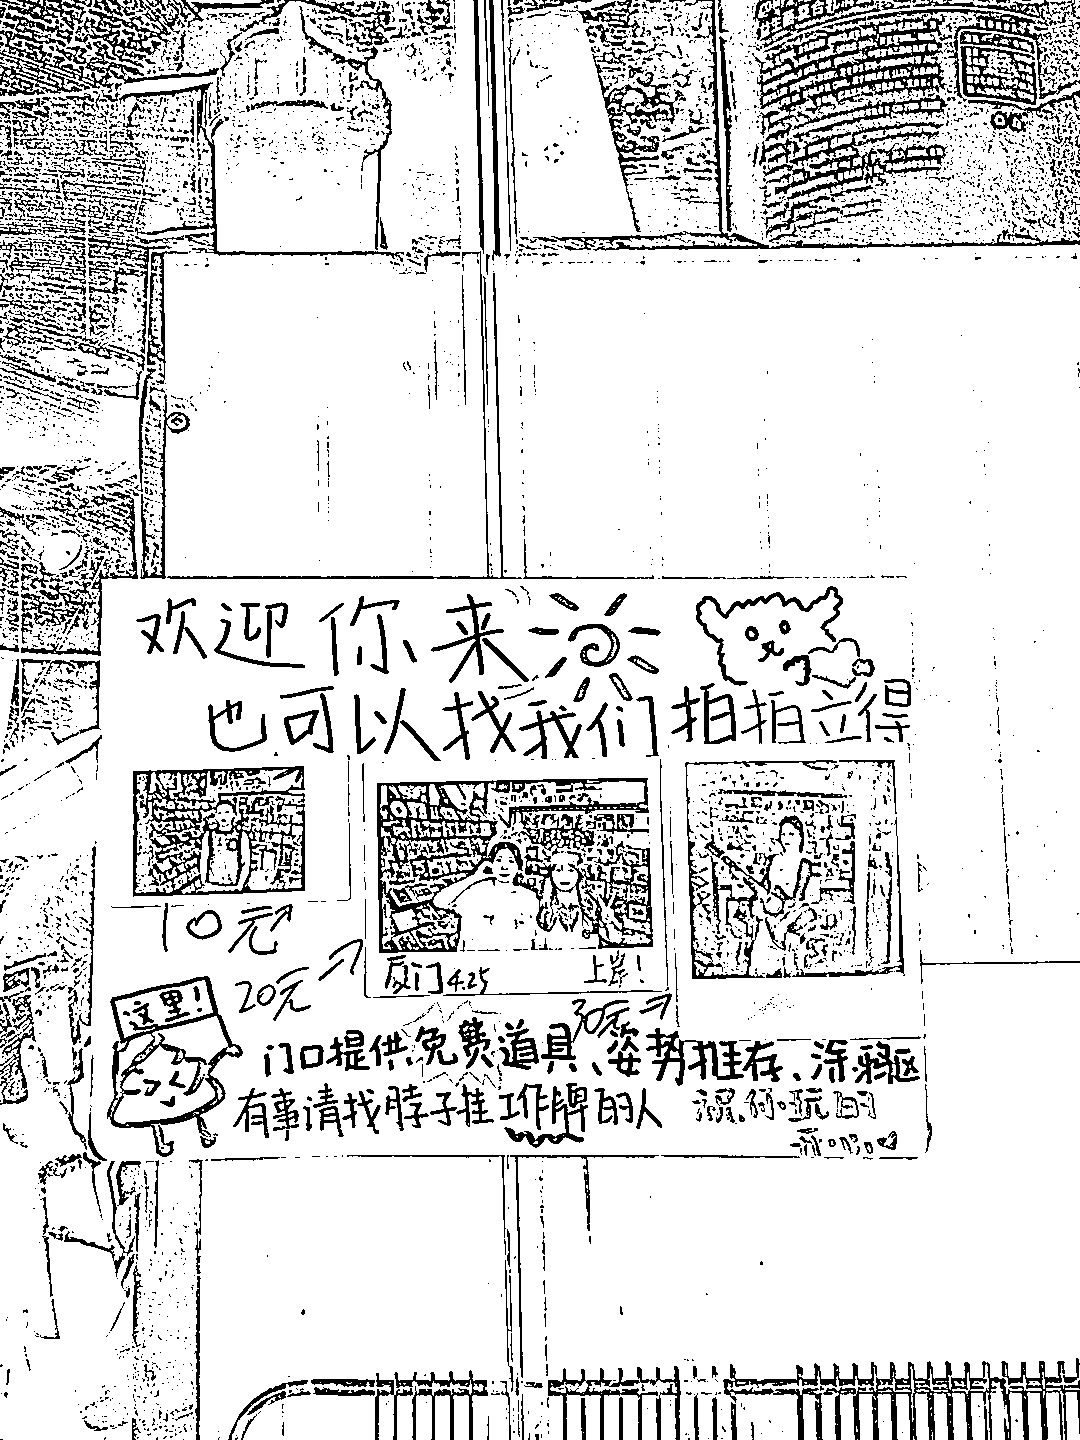 欢迎你来
也可以找我们拍拍立得
10元
20元
厦门4.25 上岸!
30元
这里!
门口提供免费道具、姿势推荐、涂鸦区
有事请找脖子挂工作牌的人 祝你玩的
开心